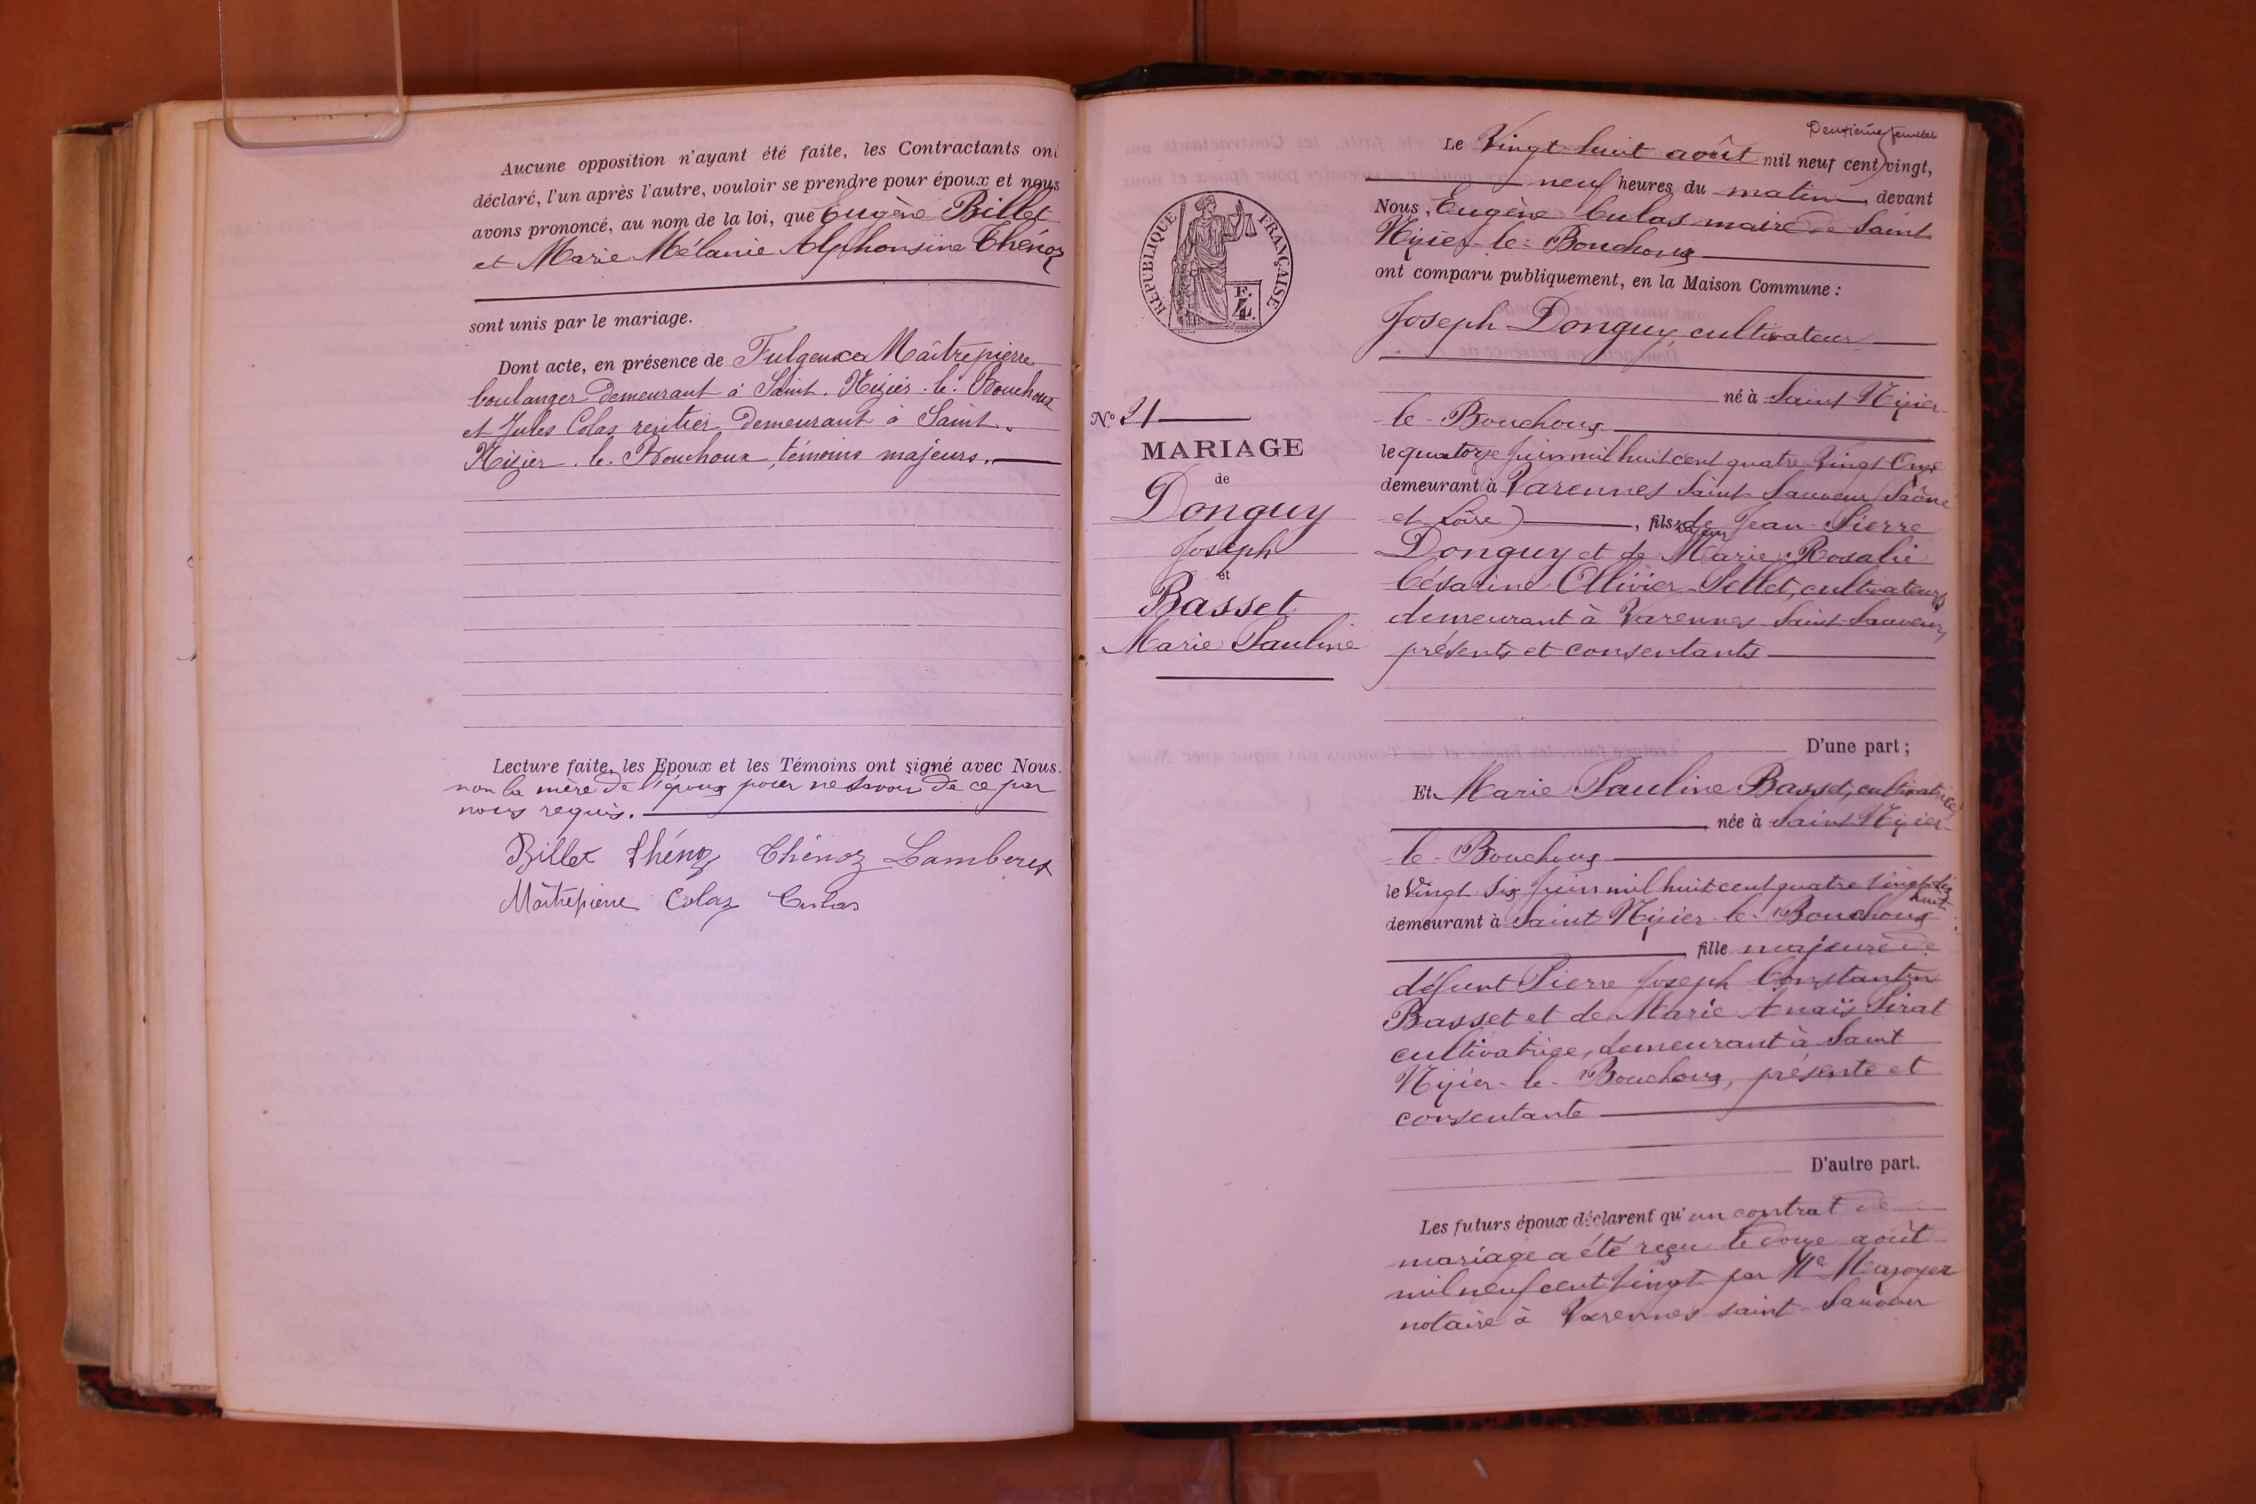 Aucune opposition n'ayant été faite, les Contractants ont
déclaré, l'un après l'autre, vouloir se prendre pour époux et nous
avons prononcé, au nom de la loi, que Eugène Billet
et Marie Mélanie Alphonsine Chénoz
sont unis par le mariage.
Dont acte, en présence de Fulgence Maîtrepierre
boulanger demeurant à Saint-Nizier-le-Bouchoux
et Jules Colas rentier demeurant à Saint-
Nizier-le-Bouchoux, témoins majeurs.
Lecture faite, les Epoux et les Témoins ont signé avec Nous.
non la mère de l'époux pour ne savoir de ce par
nous requis.
Billet Chénoz Chénoz Lamberet
Maîtrepierre Colas Culas
RÉPUBLIQUE FRANÇAISE
N° 21
MARIAGE
de
Donguy
Joseph
et
Basset
Marie Pauline
Deuxième
Le Vingt huit août mil neuf cent vingt,
neuf heures du matin, devant
Nous, Eugène Culas maire de Saint
Nizier-le-Bouchoux
ont comparu publiquement, en la Maison Commune :
Joseph Donguy, cultivateur
né à Saint Nizier-
le-Bouchoux
le quatorze juin mil huit cent quatre Vingt Onze
demeurant à Varennes Saint Sauveur (Saône
et Loire), fils majeur de Jean-Pierre
Donguy et de Marie Rosalie
Césarine Ollivier-Pellet, cultivateurs
demeurant à Varennes Saint-Sauveur,
présents et consentants
D'une part ;
Et Marie Pauline Basset, cultivatrice
née à Saint Nizier-
le-Bouchoux
le Vingt Six Juin mil huit cent quatre Vingt dix huit
demeurant à Saint Nizier-le-Bouchoux
fille majeure de
défunt Pierre Joseph Constantin
Basset et de Marie Anaïs Pirat
cultivatrice, demeurant à Saint
Nizier-le-Bouchoux, présente et
consentante
D'autre part.
Les futurs époux déclarent qu'un contrat de
mariage a été reçu le onze août
mil neuf cent vingt par Me Mazoyer
notaire à Varennes saint-Sauveur